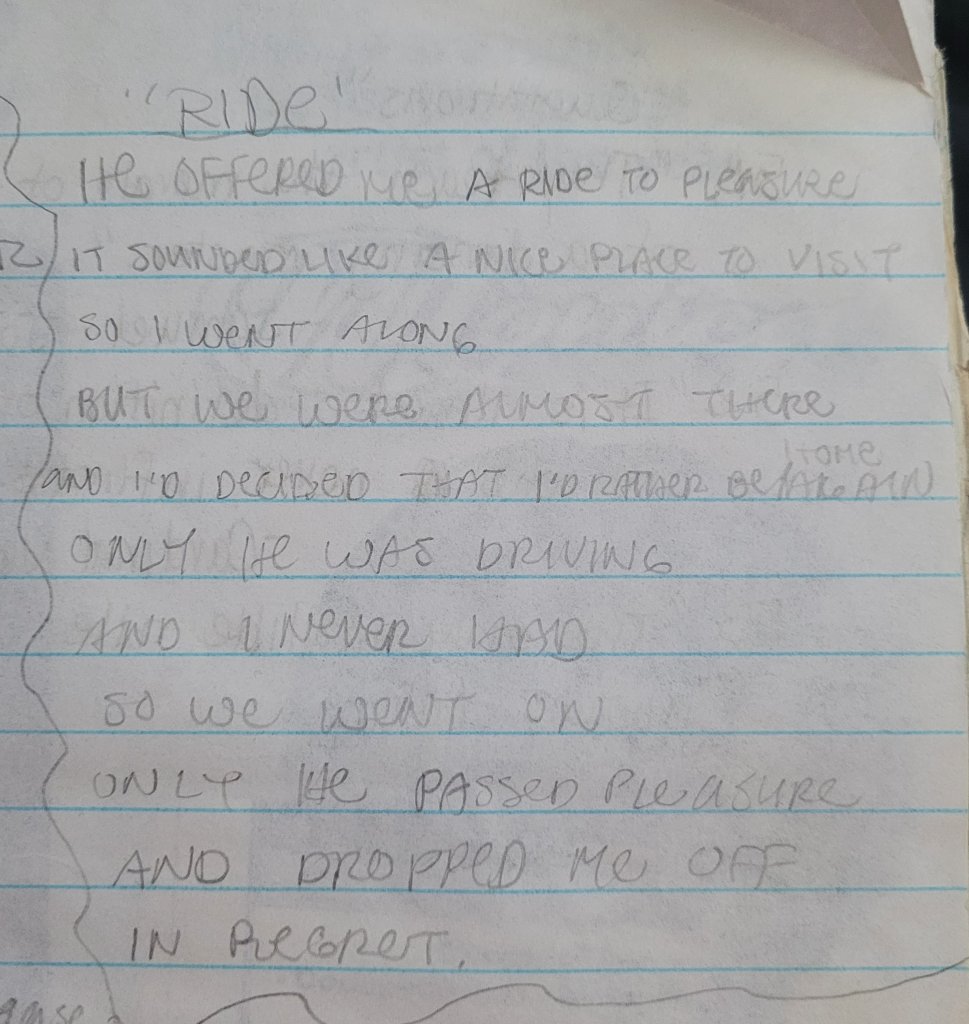 "RIDe"
He OFFERED me A RIDe TO PLeASURe
IT SOUNDED LIKe A NICe PLACe TO VISIT
SO I WeNT ALONG
BUT We WeRe ALMOST THeRe
HOMe
AND I'D DECIDED THAT I'D RATHeR Be
ONLY He WAS DRIVING
AND I NeVeR HAD
SO We WeNT ON
ONLY He PASSED PLeASURe
AND DROPPeD Me OFF
IN ReGReT.